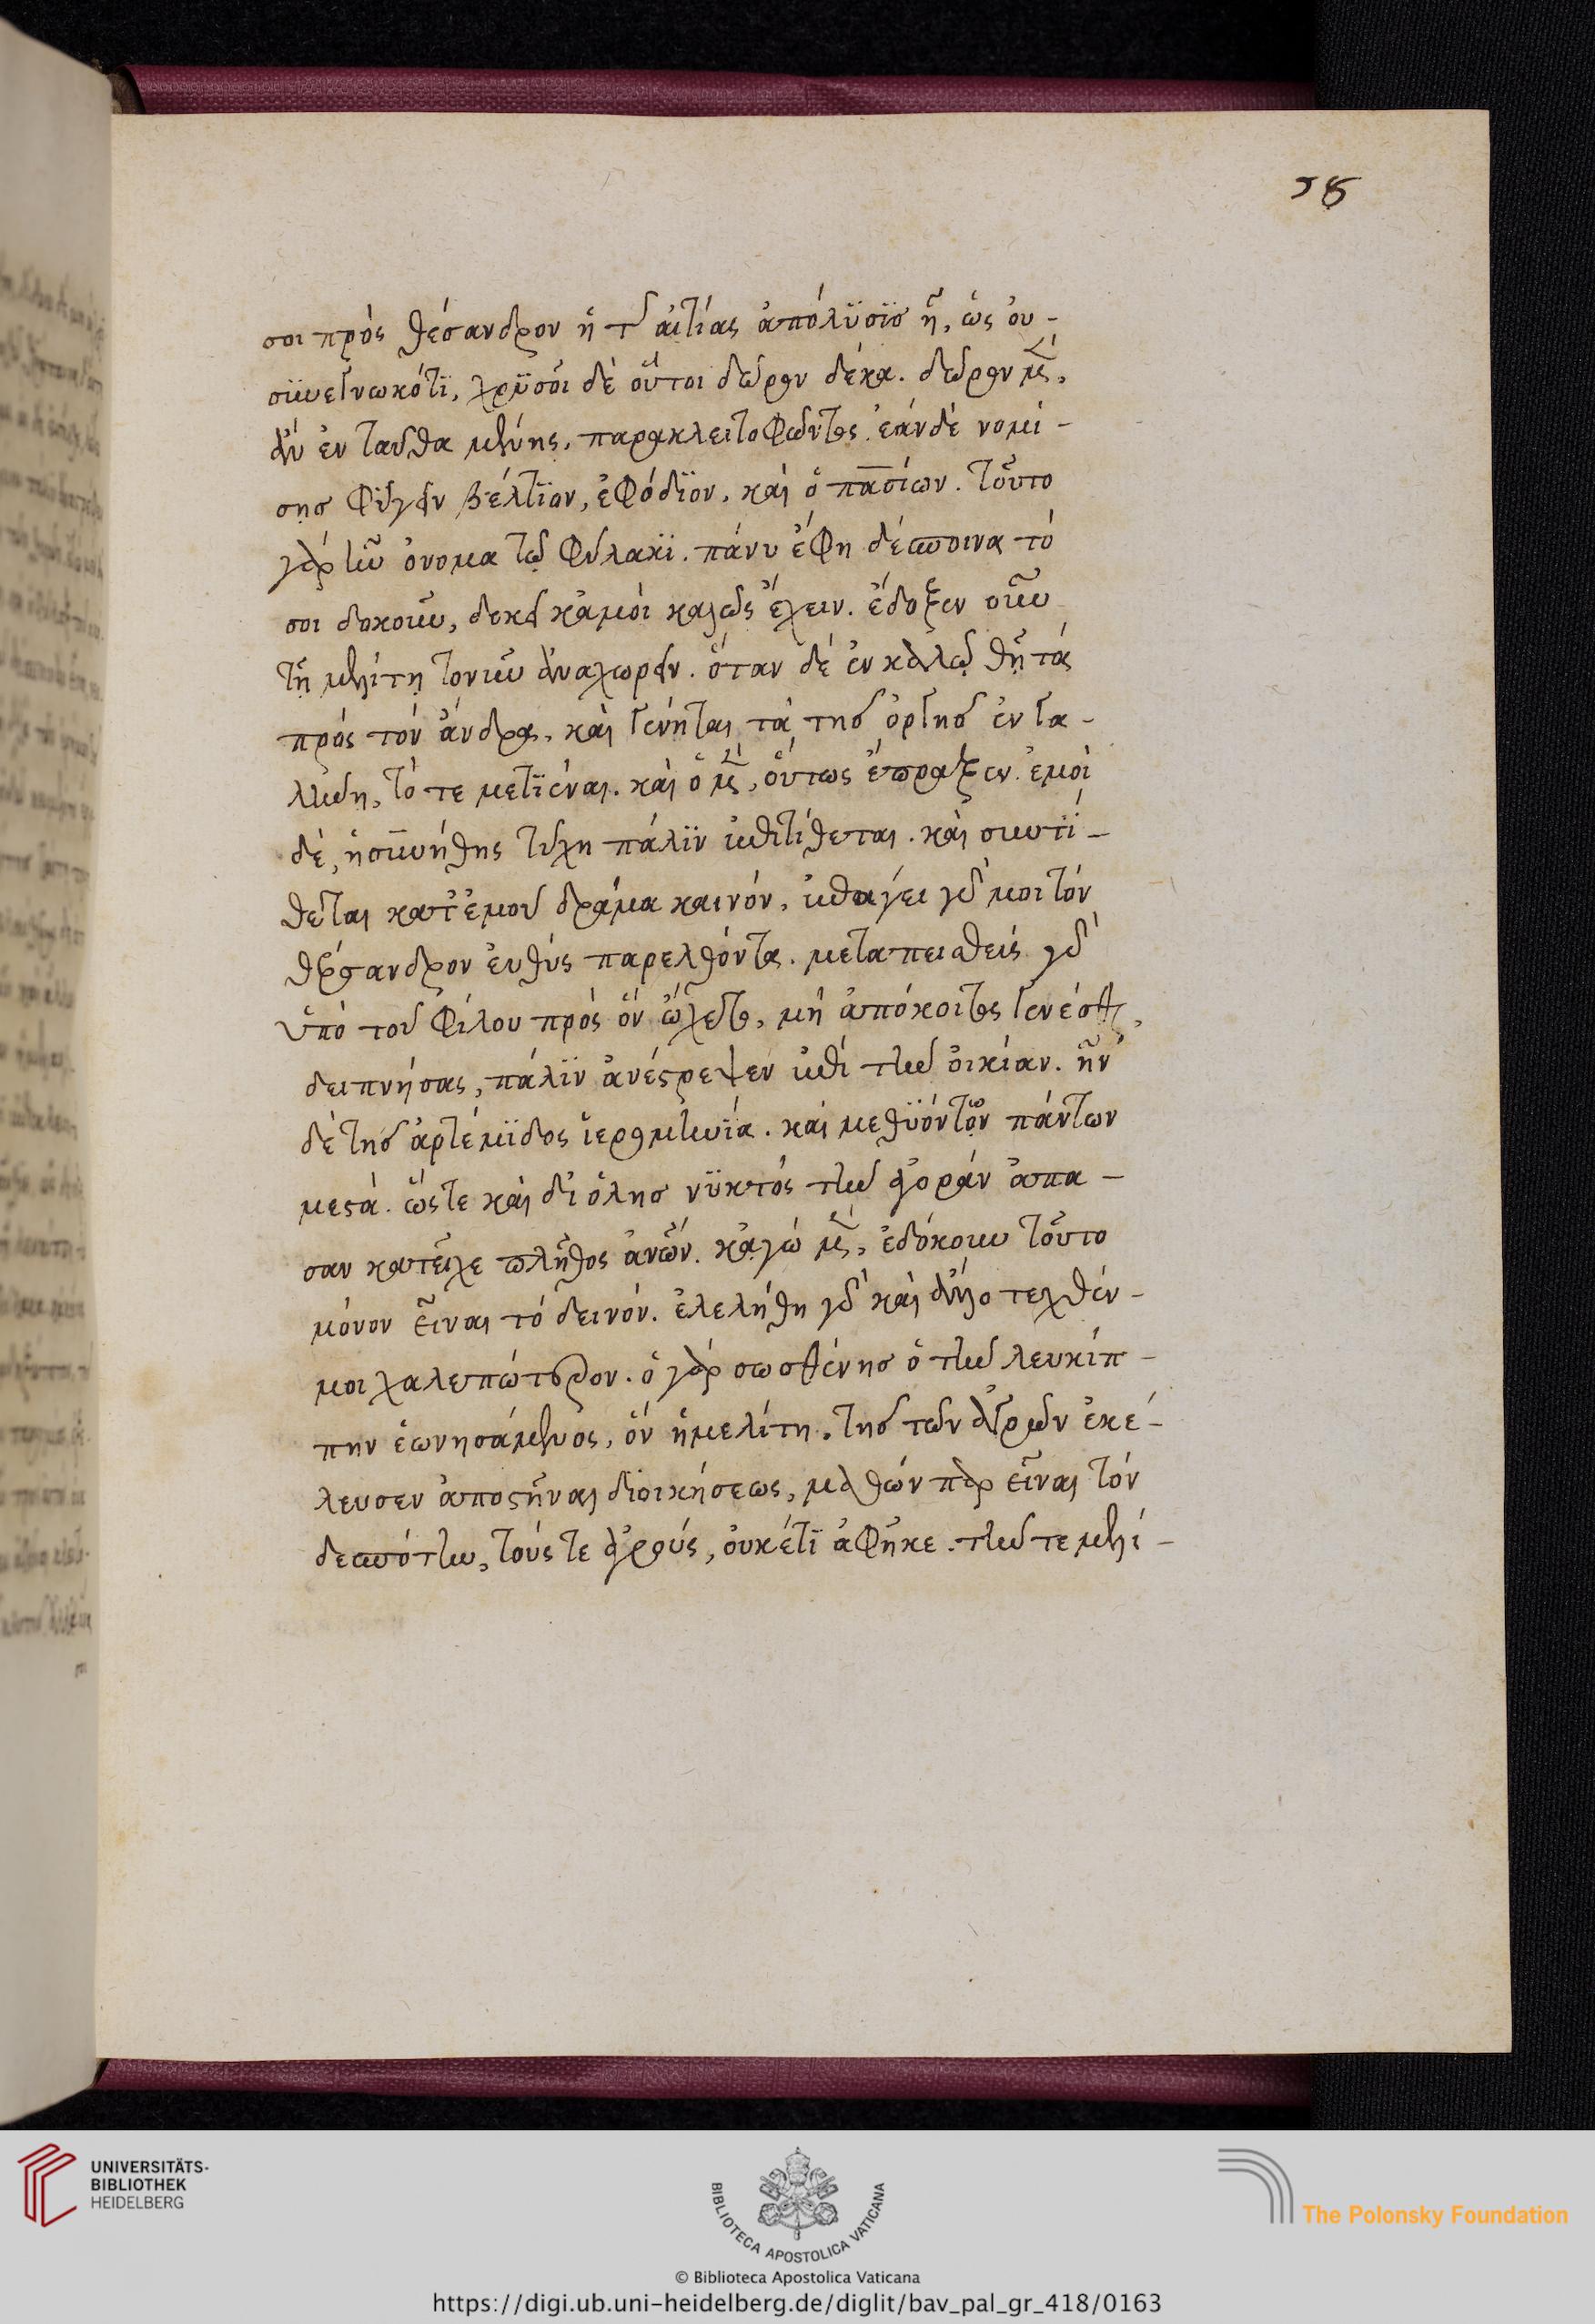 78
σοι πρὸς θέσανδρον ἡ τ αἰτίας ἀπόλϋσϊσ ᾖ, ὡς οὐ -
σϋνεγνωκότϊ, χρϋσοῖ δὲ οὗτοι δῶρον δέκα. δῶρον μὲν,
ἂν ἐνταῦθα μένης, παρὰ κλειτοφῶντος. ἐὰν δὲ νομί -
σησ φϋγεῖν βέλτϊον, ἐφόδϊον. καὶ ὁ πασίων. τοῦτο
γὰρ ἦν ὄνομα τῷ φύλακϊ. πάνυ ἔφη δέσποινα τό
σοι δοκοῦν, δοκεῖ κἀμοὶ καλῶς ἔχειν. ἔδοξεν οὖν
τῇ μελίτῃ τονῦν ἀναχωρεῖν. ὅταν δὲ ἐν καλῷ θῇ τὰ
πρὸς τὸν ἄνδρα, καὶ γένηται τὰ τησ ὀργησ ἐν γα -
λήνη, τότε μετϊέναι. καὶ ὁ μὲν, οὕτως ἔπραξεν. ἐμοὶ
δὲ, ἡ σϋνήθης τύχη πάλϊν ἐπιτίθεται. καὶ συντϊ -
θεται κατ' ἐμοῦ δρᾶμα καινόν, ἐπάγει γάρ μοι τὸν
θέρσανδρον εὐθὺς παρελθόντα. μεταπεισθεὶς γὰρ
ὑπὸ τοῦ φίλου πρὸς ὃν ᾤχετο, μὴ ἀπόκοιτος γενέσθαι,
δειπνήσας, πάλϊν ἀνέστρεψεν ἐπὶ τὴν οἰκίαν. ἦν
δὲ τησ ἀρτέμϊδος ἱερομηνϊα. καὶ μεθϋόντων πάντων
μεστὰ. ὥστε καὶ δι' ὅλησ νϋκτὸς τὴν ἀγορὰν ἅπα -
σαν κατεῖχε πλῆθος ἀνῶν. κἀγὼ μὲν, ἐδόκουν τοῦτο
μόνον εἶναι τὸ δεινόν. ἐλελήθη γὰρ καὶ ἄλλο τεχθέν -
μοι χαλεπώτερον. ὁ γὰρ σωσθένησ ὁ τὴν λευκίπ -
πην ἐωνησάμενος, ὃν ἡ μελίτη. τησ τῶν ἀγρῶν ἐκέ -
λευσεν ἀποστῆναι διοικήσεως, μαθὼν παρεῖναι τὸν
δεσπότην, τούς τε ἀγρούς, οὐκέτϊ ἀφῆκε. τήν τε μελί -
UNIVERSITÄTS-
BIBLIOTHEK
HEIDELBERG
BIBLIOTECA APOSTOLICA VATICANA
© Biblioteca Apostolica Vaticana
The Polonsky Foundation
https://digi.ub.uni-heidelberg.de/diglit/bav_pal_gr_418/0163